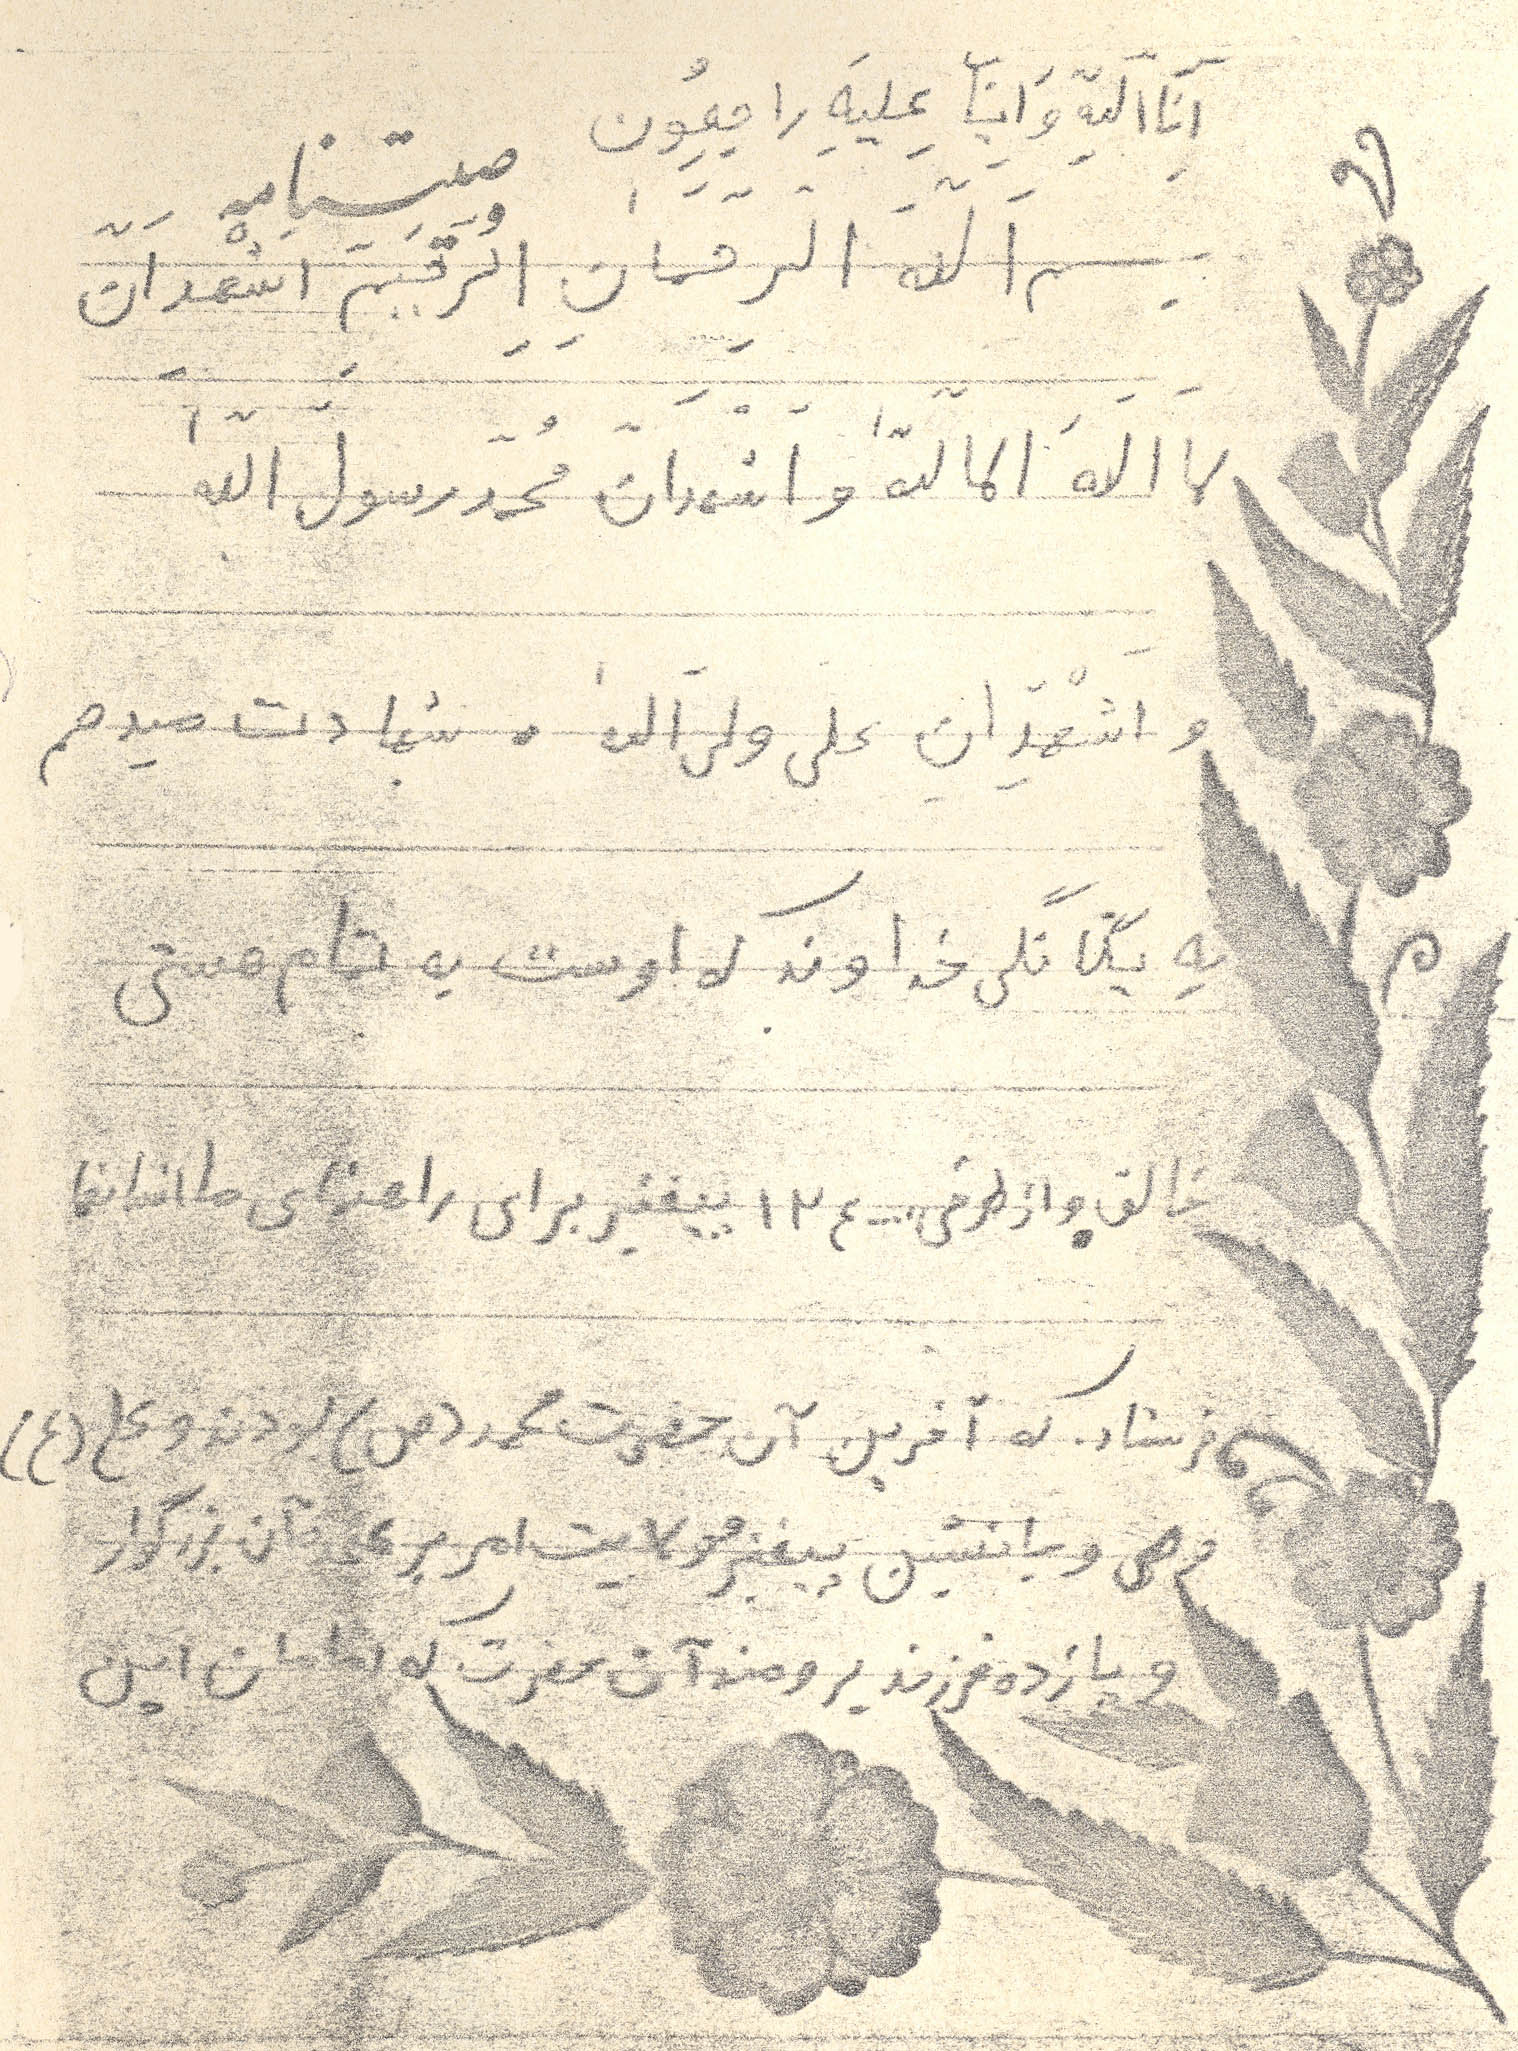 اَنَا الّلهِ وَ اِنَّا عِلیهَ راجِعِوُن
وصیّت‌نامه
بِسم اَللّه الَّرحَمانِ الِرَّحَیمَ اَشْهَدَاَنّ
لا اَلاهَ اَلا لّله وَ اَشْهَداَنَّ مُحَمّدَ رسولَ الّله
وَ اَشْهَدِانِ علی ولی اَلله . شهادت میدهم
به یگانگی خداوند که اوست به تمام هستی
خالق و از طرفی ۱۲۴۰۰۰ پیغمبر برای راهنمای ما انسانها
فرستاد. که آخرین آن حضرت محمد (ص) بودند و علی (ع)
وصی و جانشین پیغمبر و ولایت امر بر عهده آن بزرگوار
و یازده فرزند برومند آن حضرت که امامان این